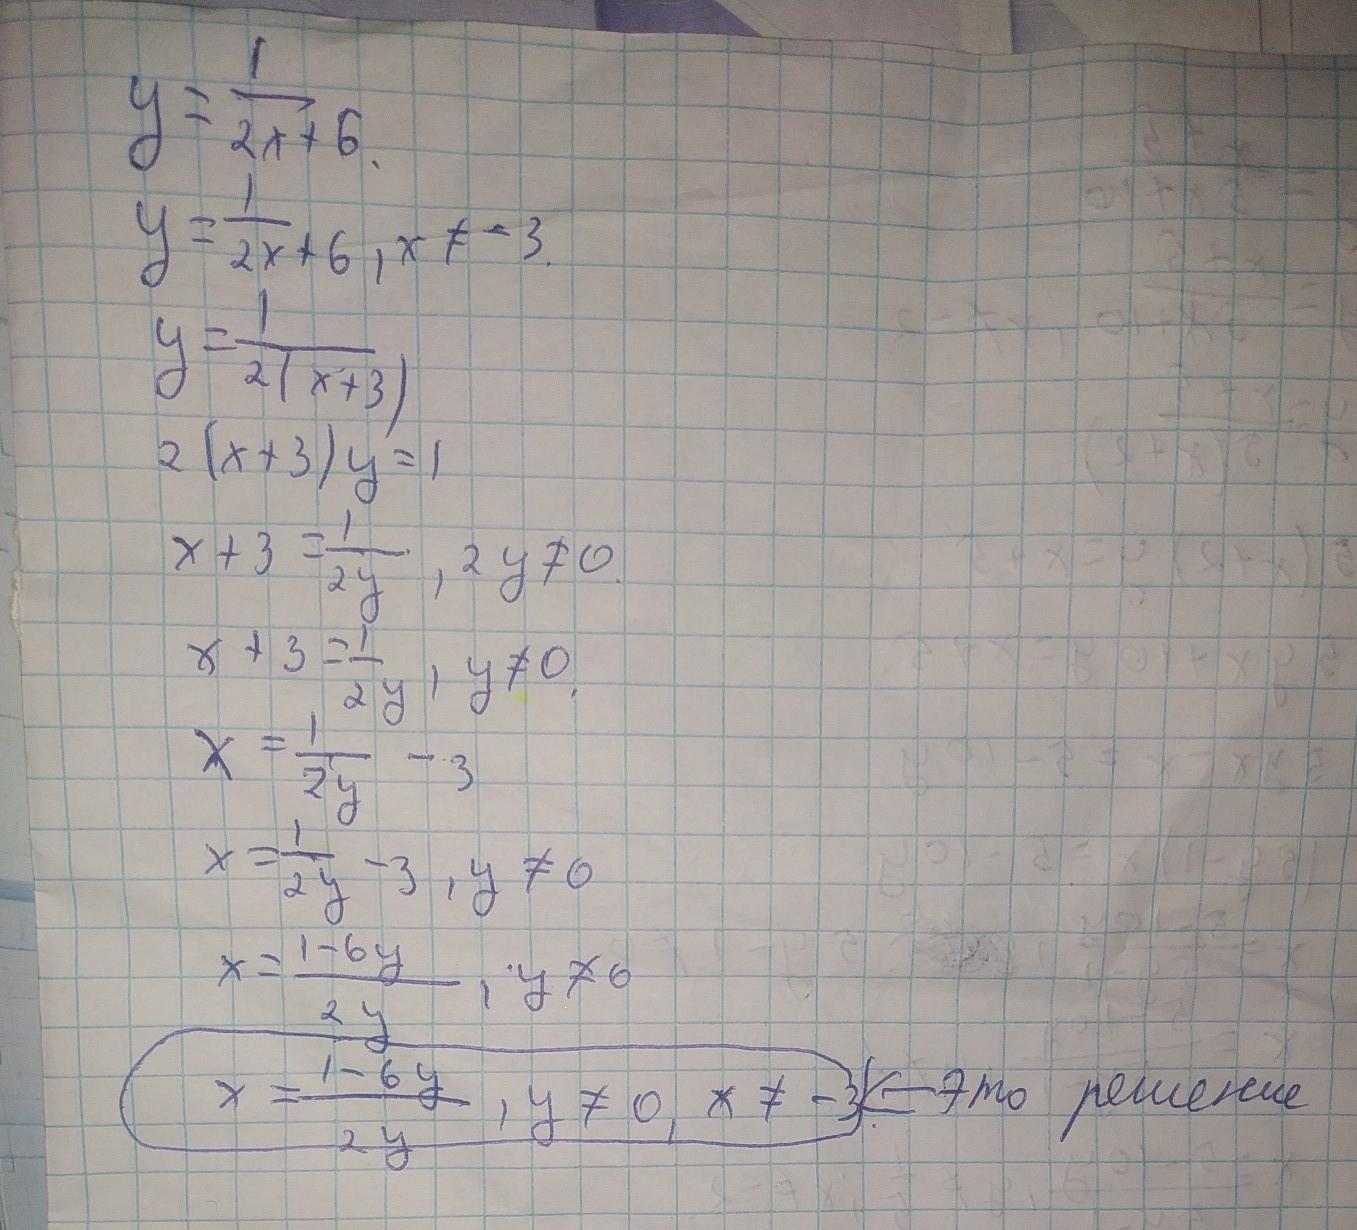 y = 1/(2x+6).
y = 1/(2x+6), x ≠ -3.
y = 1/(2(x+3))
2(x+3)y = 1
x+3 = 1/(2y), 2y ≠ 0.
x+3 = 1/(2y), y ≠ 0.
x = 1/(2y) - 3
x = 1/(2y) - 3, y ≠ 0
x = (1-6y)/(2y), y ≠ 0
x = (1-6y)/(2y), y ≠ 0, x ≠ -3 ← Это решение